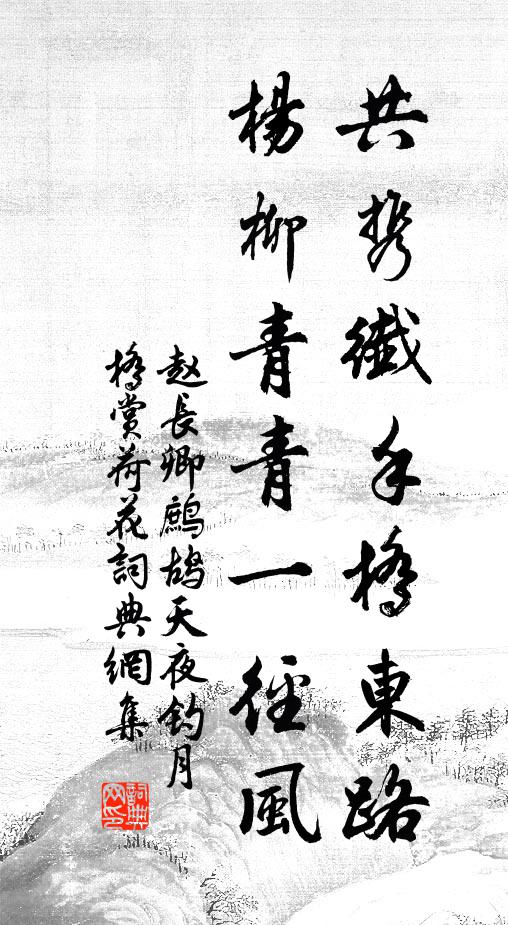 共携纖手橋東路
楊柳青青一徑風
赵長卿鷓鴣天夜釣月
橋賞荷花詞典網集
詞典
网印